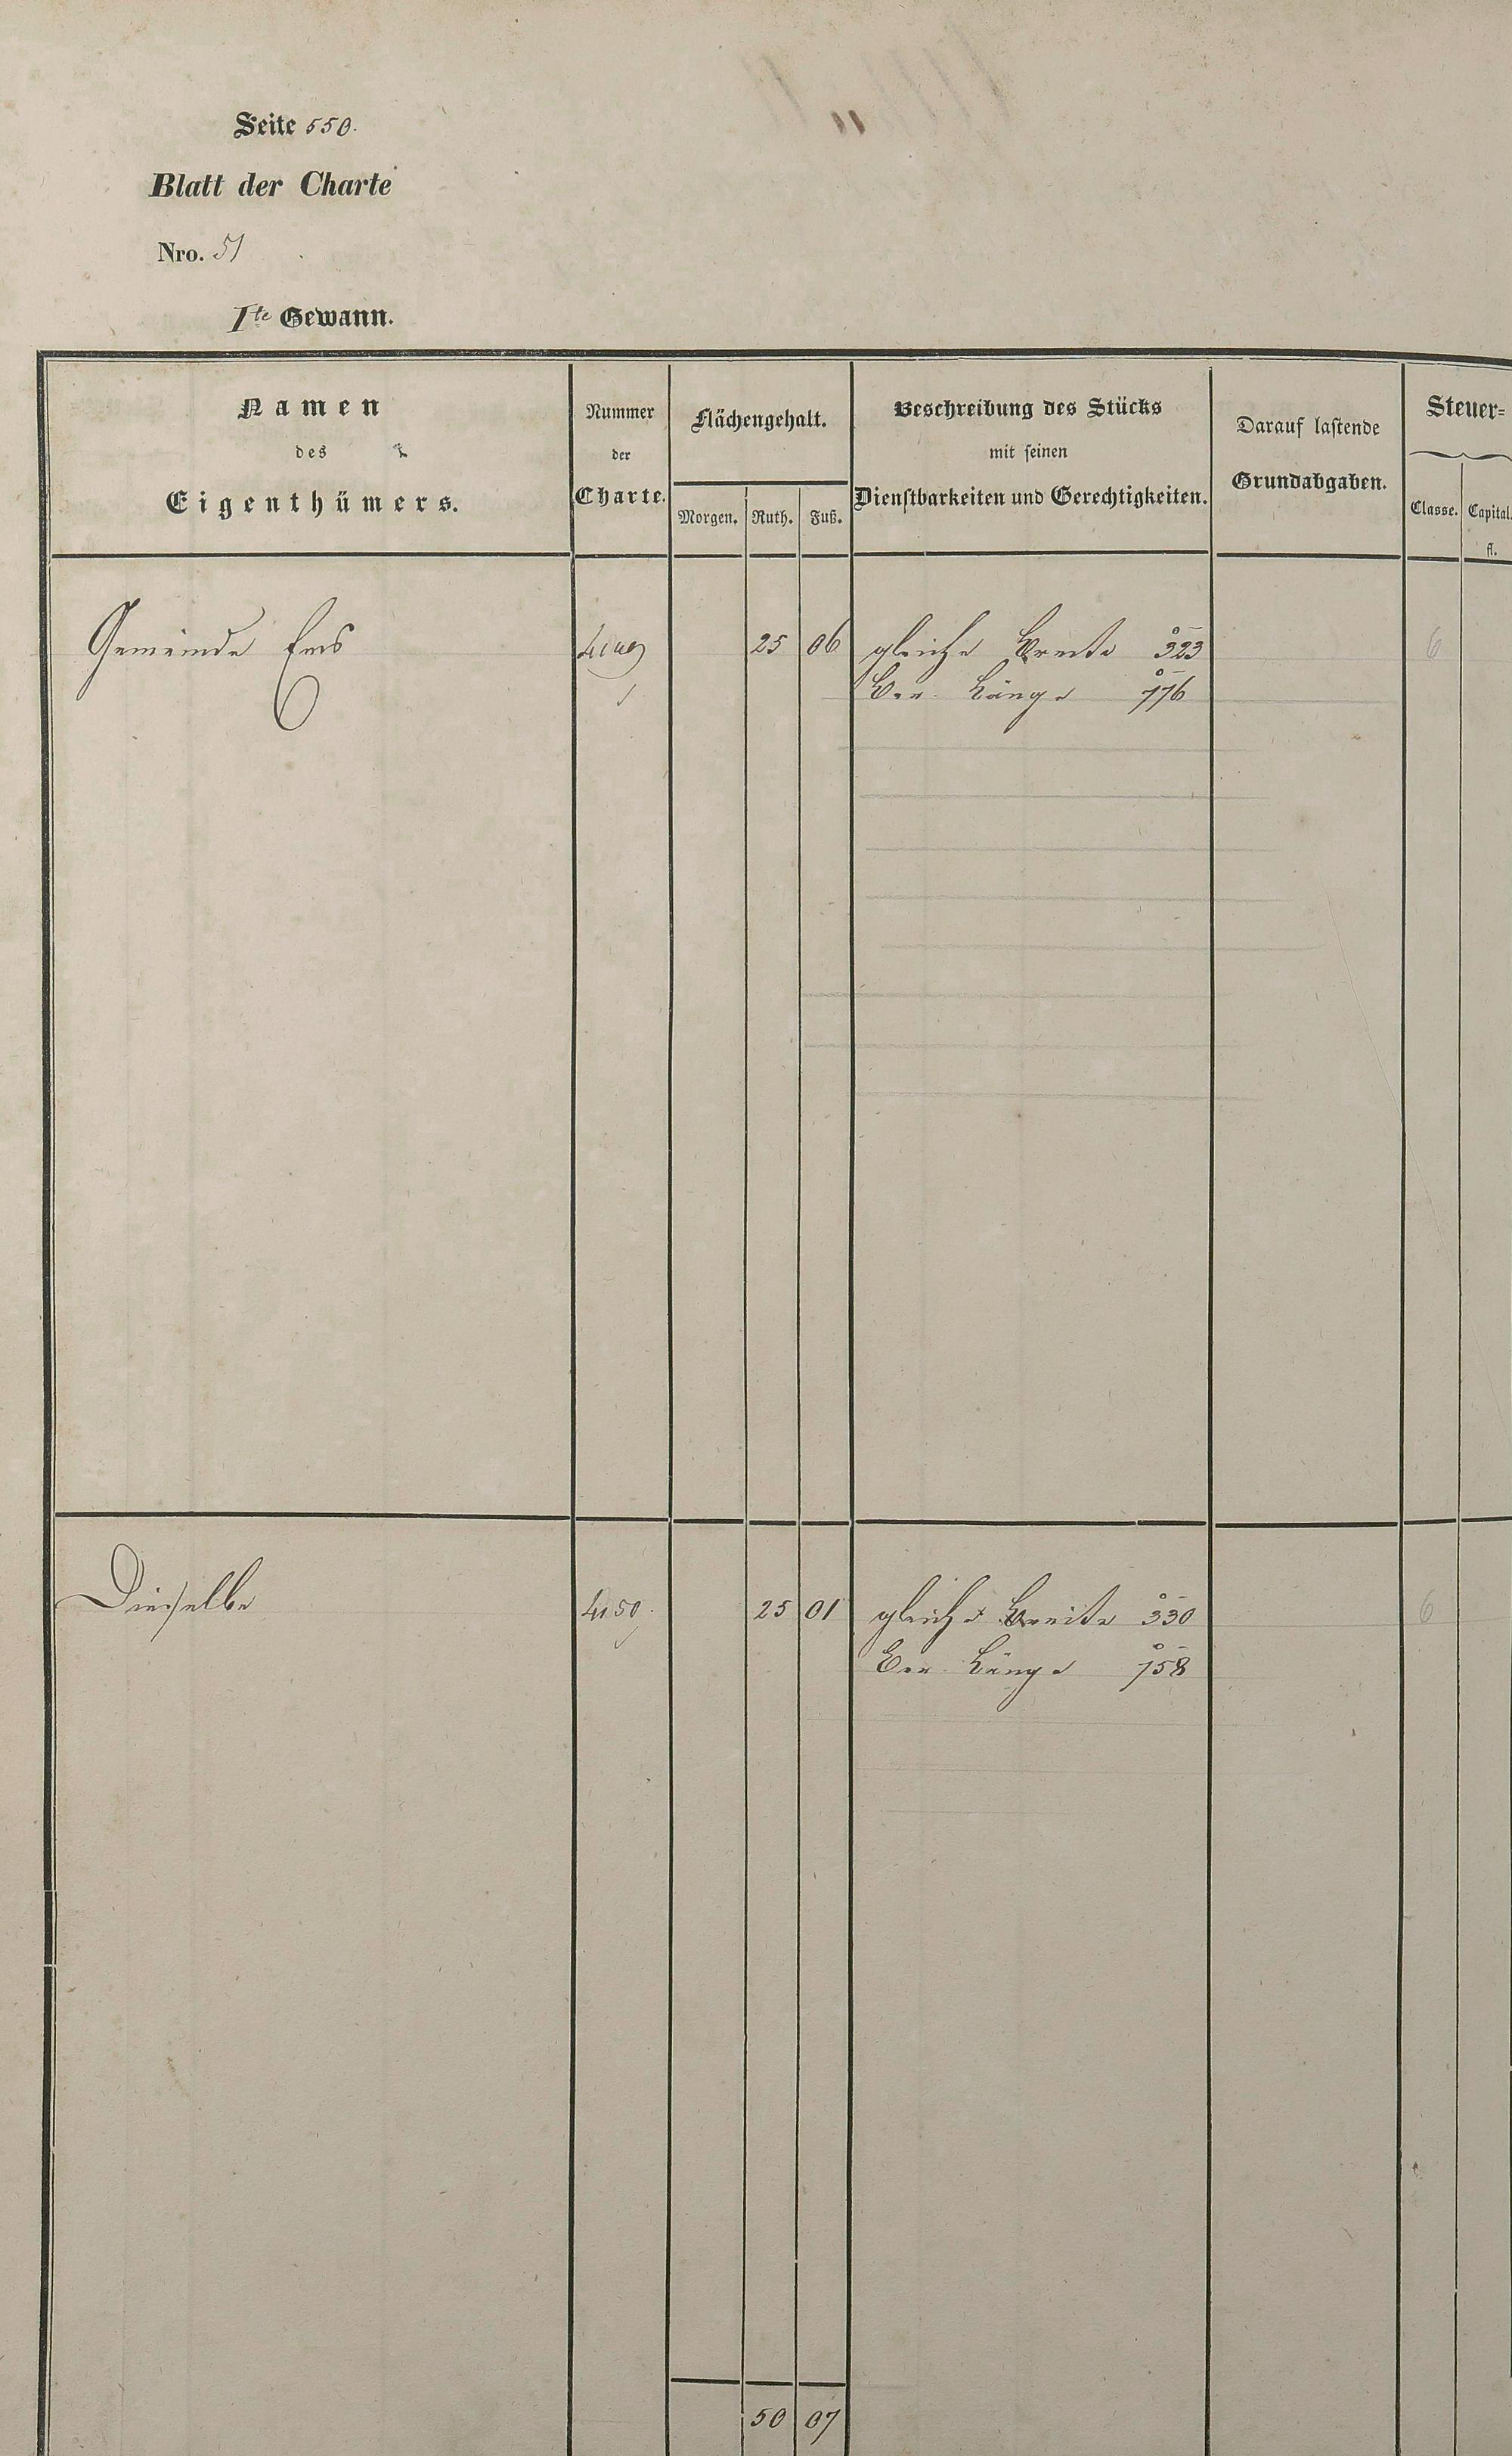 Seite 550.
Blatt der Charte
Nro. 51
Ite Gewann.
Namen
des
Eigenthümers.
Nummer
der
Charte.
Flächengehalt.
Morgen. Ruth. Fuß.
Beschreibung des Stücks
mit seinen
Dienstbarkeiten und Gerechtigkeiten.
Darauf lastende
Grundabgaben.
Steuer=
Classe. Capital.
fl.
Gemeinde Ems 4149 25 06 gleiche Breite 323 6
Länge 776
Dieselbe 4150. 25 01 gleiche Breite 330 6
Länge 758
50 07